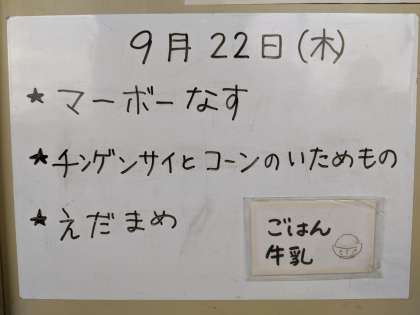 9月22日(木)
★マーボーなす
★チンゲンサイとコーンのいためもの
★えだまめ
ごはん
牛乳